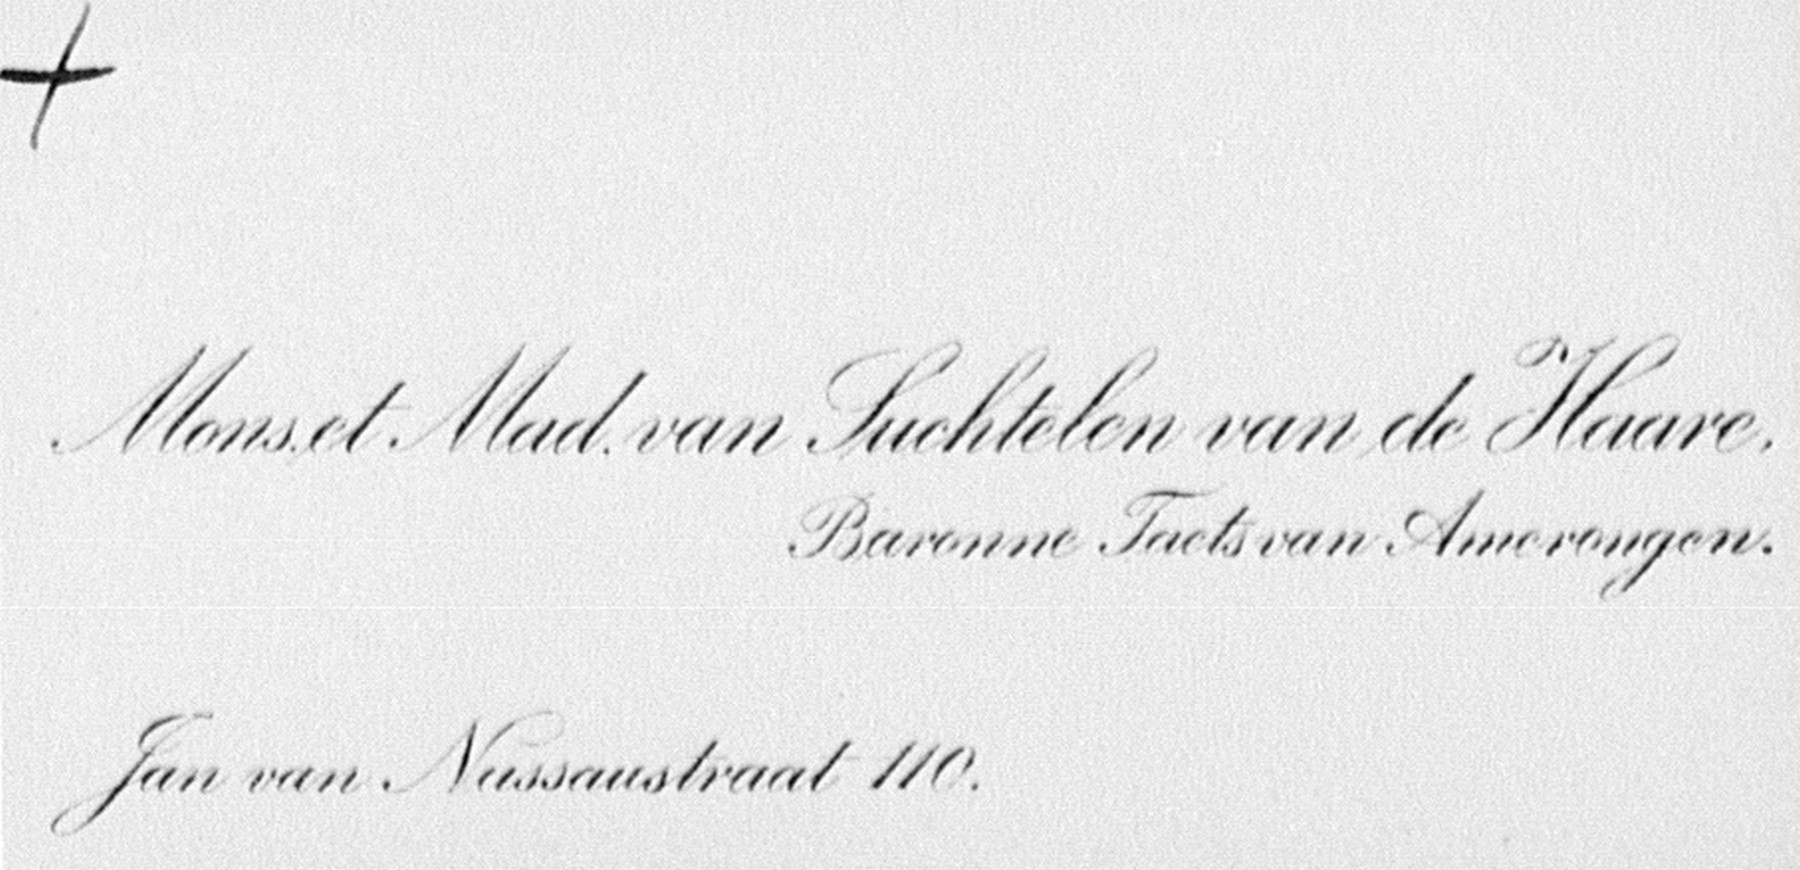 Mons. et Mad. van Suchtelen van de Haare,
Baronne Taets van Amerongen.
Jan van Nassaustraat 110.